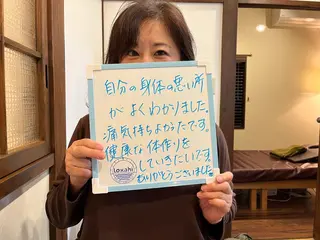 自分の身体の悪い所
がよくわかりました。
痛気持ちよかったです。
健康な体作りを
していきたいです。
ありがとうございました
lokahi